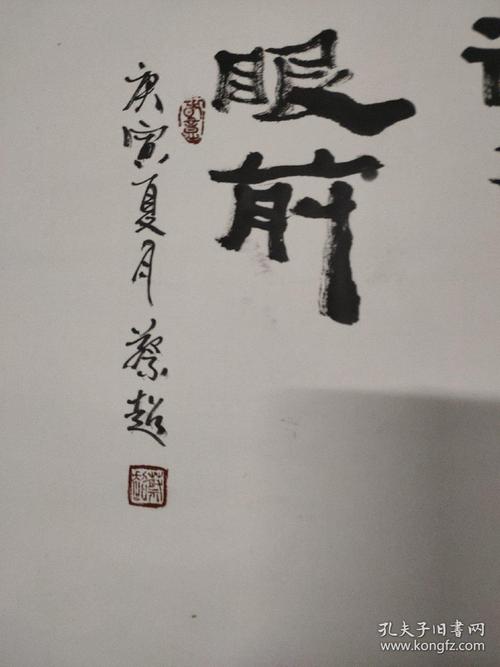 眼前
庚寅夏月蔡超
蔡超
孔夫子旧书网
www.kongfz.com